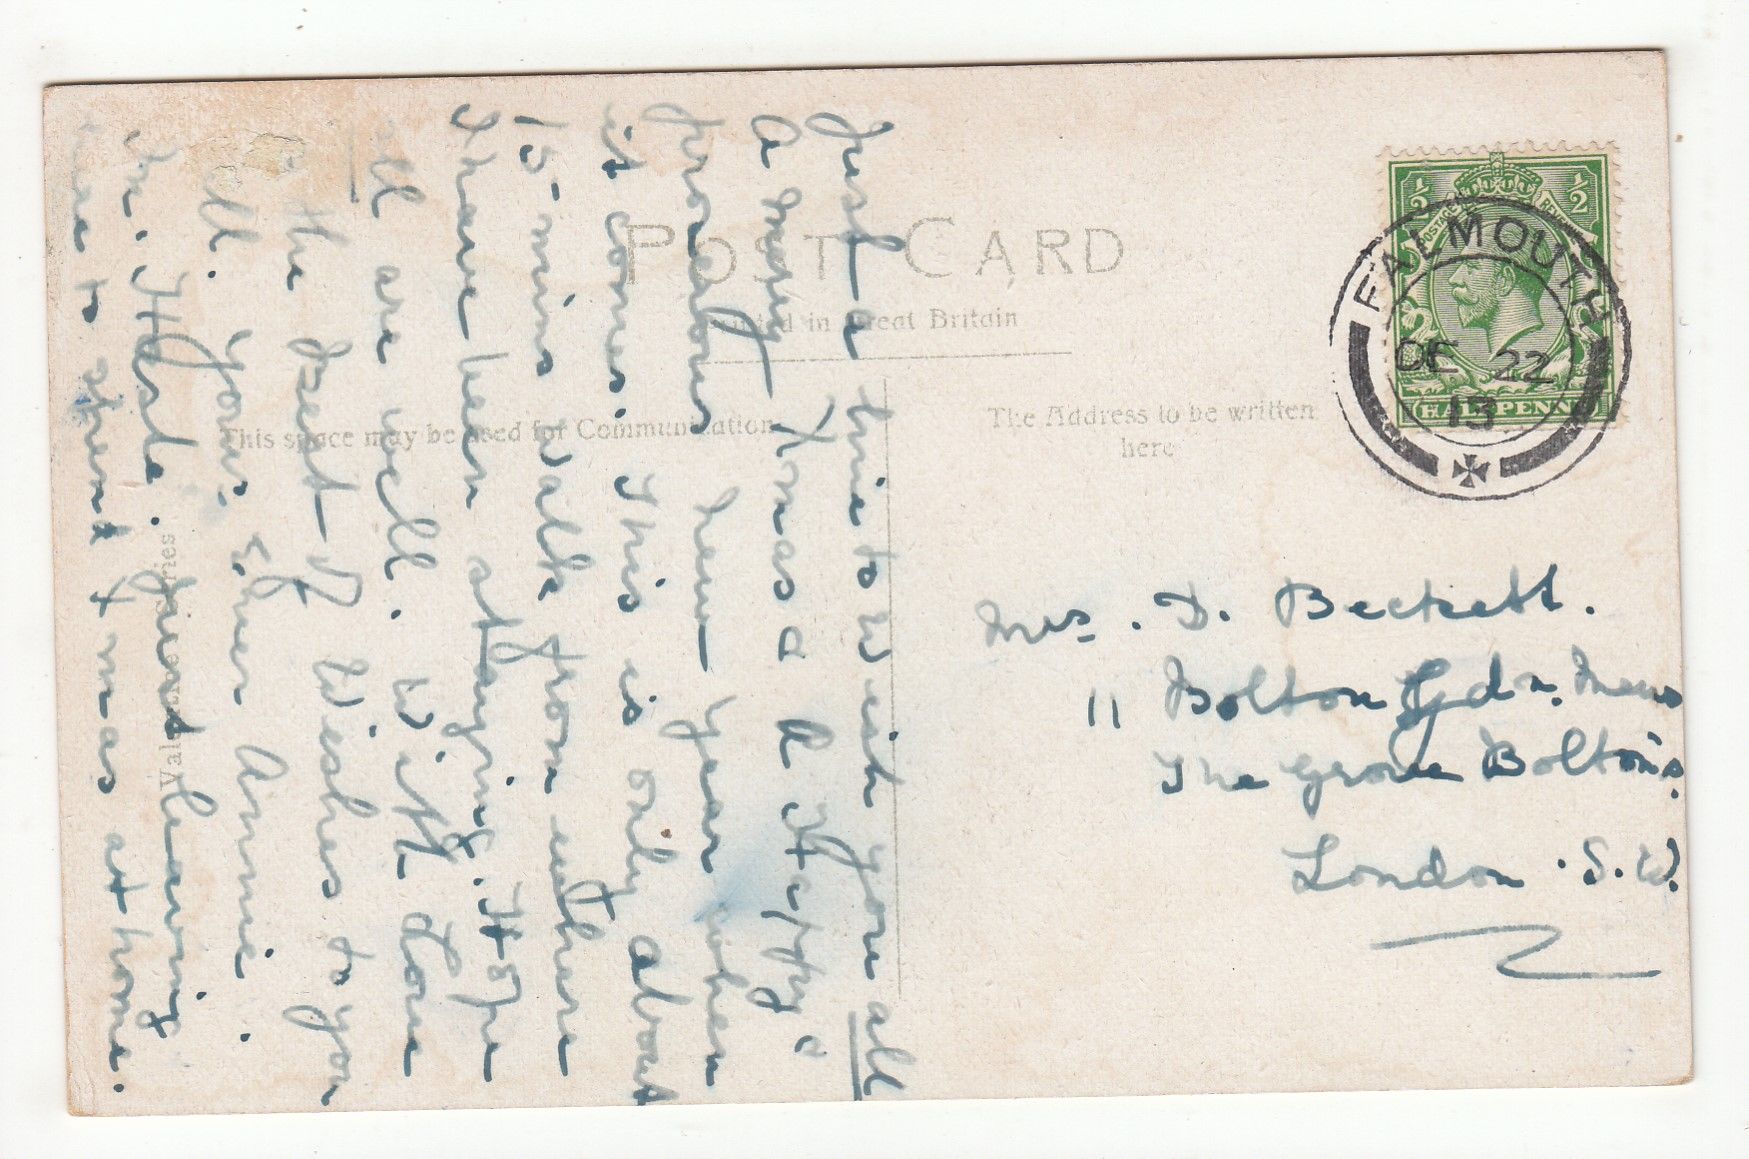 POST CARD
Printed in Great Britain
This space may be used for Communication
The Address to be written
here
Valentine's Series
½ ½
POSTAGE REVENUE
HALFPENNY
FALMOUTH
DE 22
13
Just a line to Wish you all
a Merry Xmas & A Happy &
prosperous New Year when
it comes. This is only about
15 mins Walk from where
I have been staying. Hope
all are well. With Love
& the Best of Wishes to you
all. Your Annie.
in Haste. just leaving
here to spend Xmas at home.
Mrs. D. Beckett.
11 Bolton Gdn. Mews
The Grove Bolton's.
London. S.W.